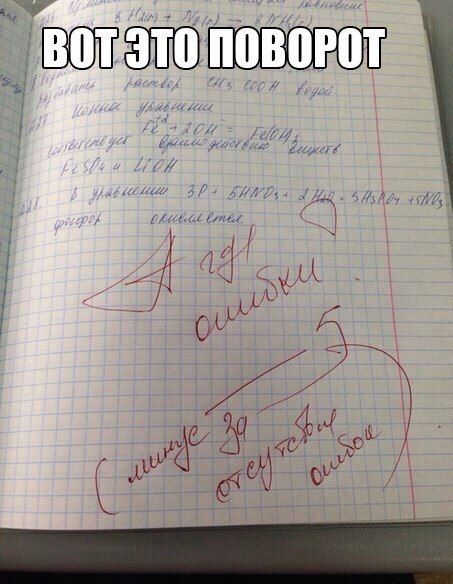 ВОТ ЭТО ПОВОРОТ
3 H2(г) + N2(г) → 2 NH3(г)
раствор CH3COOH водой
A27 Ионное уравнение
Fe+2 + 2OH- = Fe(OH)2
соответствует взаимодействию веществ
FeSO4 и LiOH
A28. В уравнении 3P + 5HNO3 + 2H2O = 3H3PO4 + 5NO
фосфор окисляется
А где
ошибки ?
5
(минус за
отсутствие
ошибок)